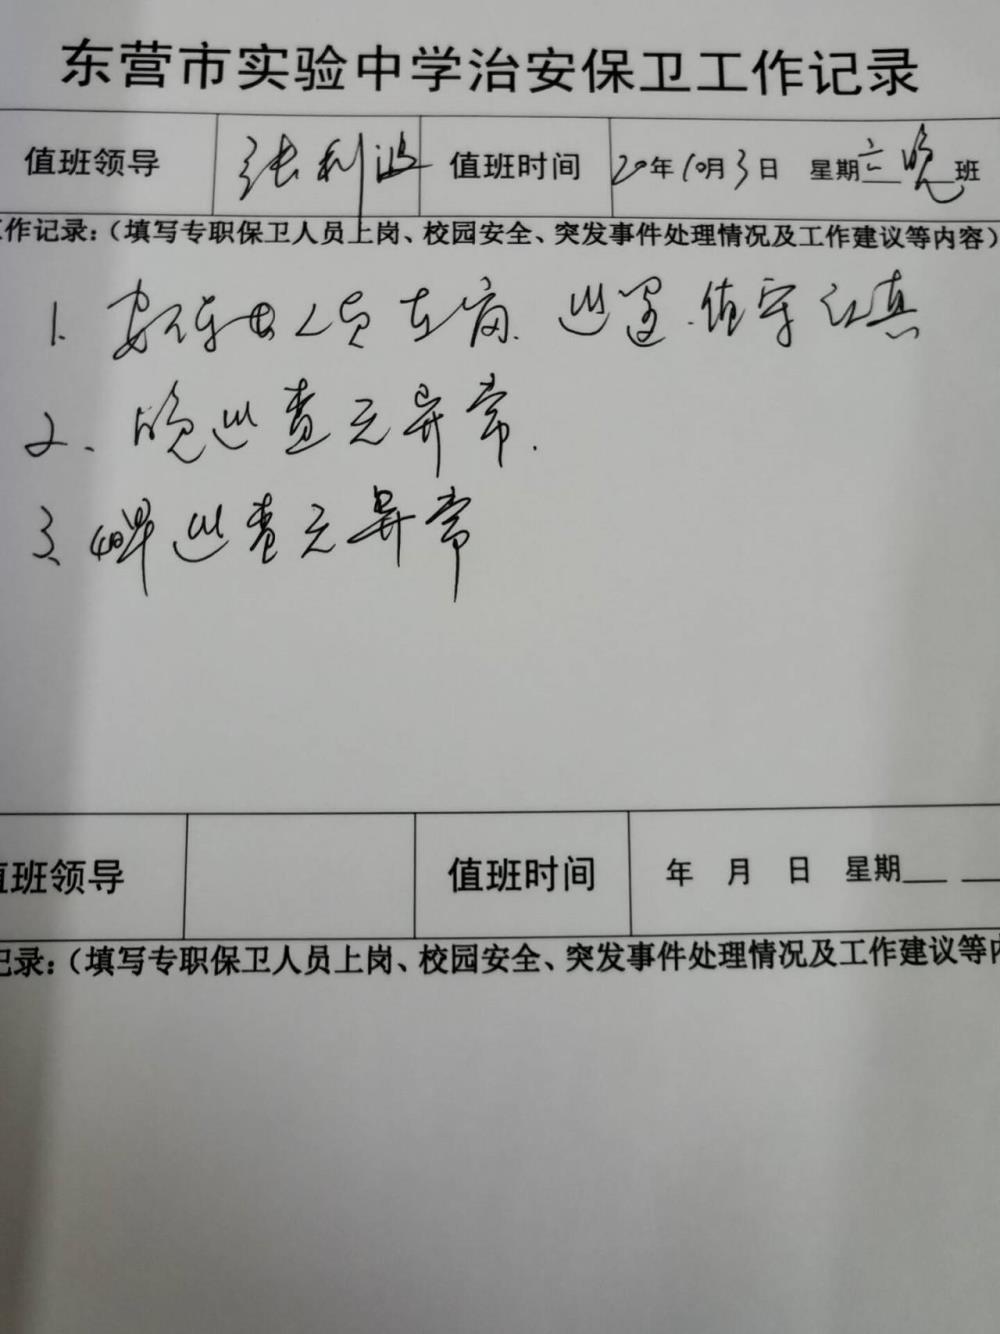 东营市实验中学治安保卫工作记录
值班领导 张利波 值班时间 20年10月3日 星期六晚班
工作记录:(填写专职保卫人员上岗、校园安全、突发事件处理情况及工作建议等内容)
1. 安保人员在岗、巡逻、值守认真
2、晚巡查无异常.
3、晨巡查无异常
值班领导 值班时间 年 月 日 星期
记录:(填写专职保卫人员上岗、校园安全、突发事件处理情况及工作建议等内